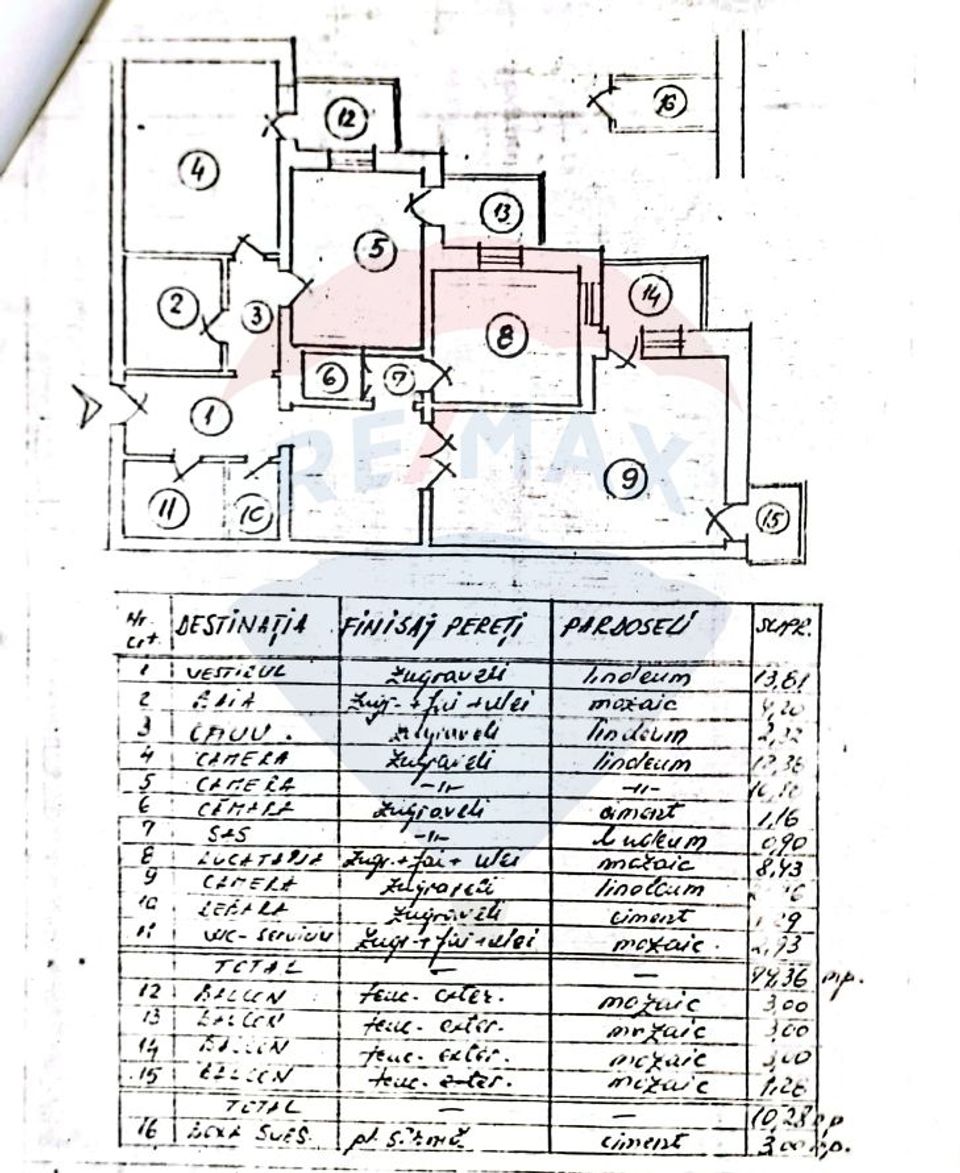 12
16
4
13
5
2
14
3
8
6
7
1
RE/MAX
9
11
10
15
Nr. crt. DESTINAȚIA FINISAJ PEREȚI PARDOSELI SUPR.
1 VESTIBUL zugraveli linoleum 13,81
2 BAIA zugr. + fai + ulei mozaic 4,20
3 zugraveli linoleum
4 CAMERA zugraveli linoleum
5 CAMERA -"- -"-
6 CĂMARA zugraveli ciment 1,16
7 SAS -"- linoleum 0,90
8 BUCATARIA zugr. + fai + ulei mozaic 8,43
9 CAMERA zugraveli linoleum
10 zugraveli ciment
11 WC-SERVICIU zugr. + fai + ulei mozaic. 2,93
TOTAL — — 94,36 m.p.
12 BALCON tenc. exter. mozaic 3,00
13 BALCON tenc. exter. mozaic 3,00
14 BALCON tenc. exter. mozaic 3,00
15 BALCON tenc. exter. mozaic 1,28
TOTAL — — 10,28 m.p.
16 BOXA SUBS. ciment 3,00 m.p.